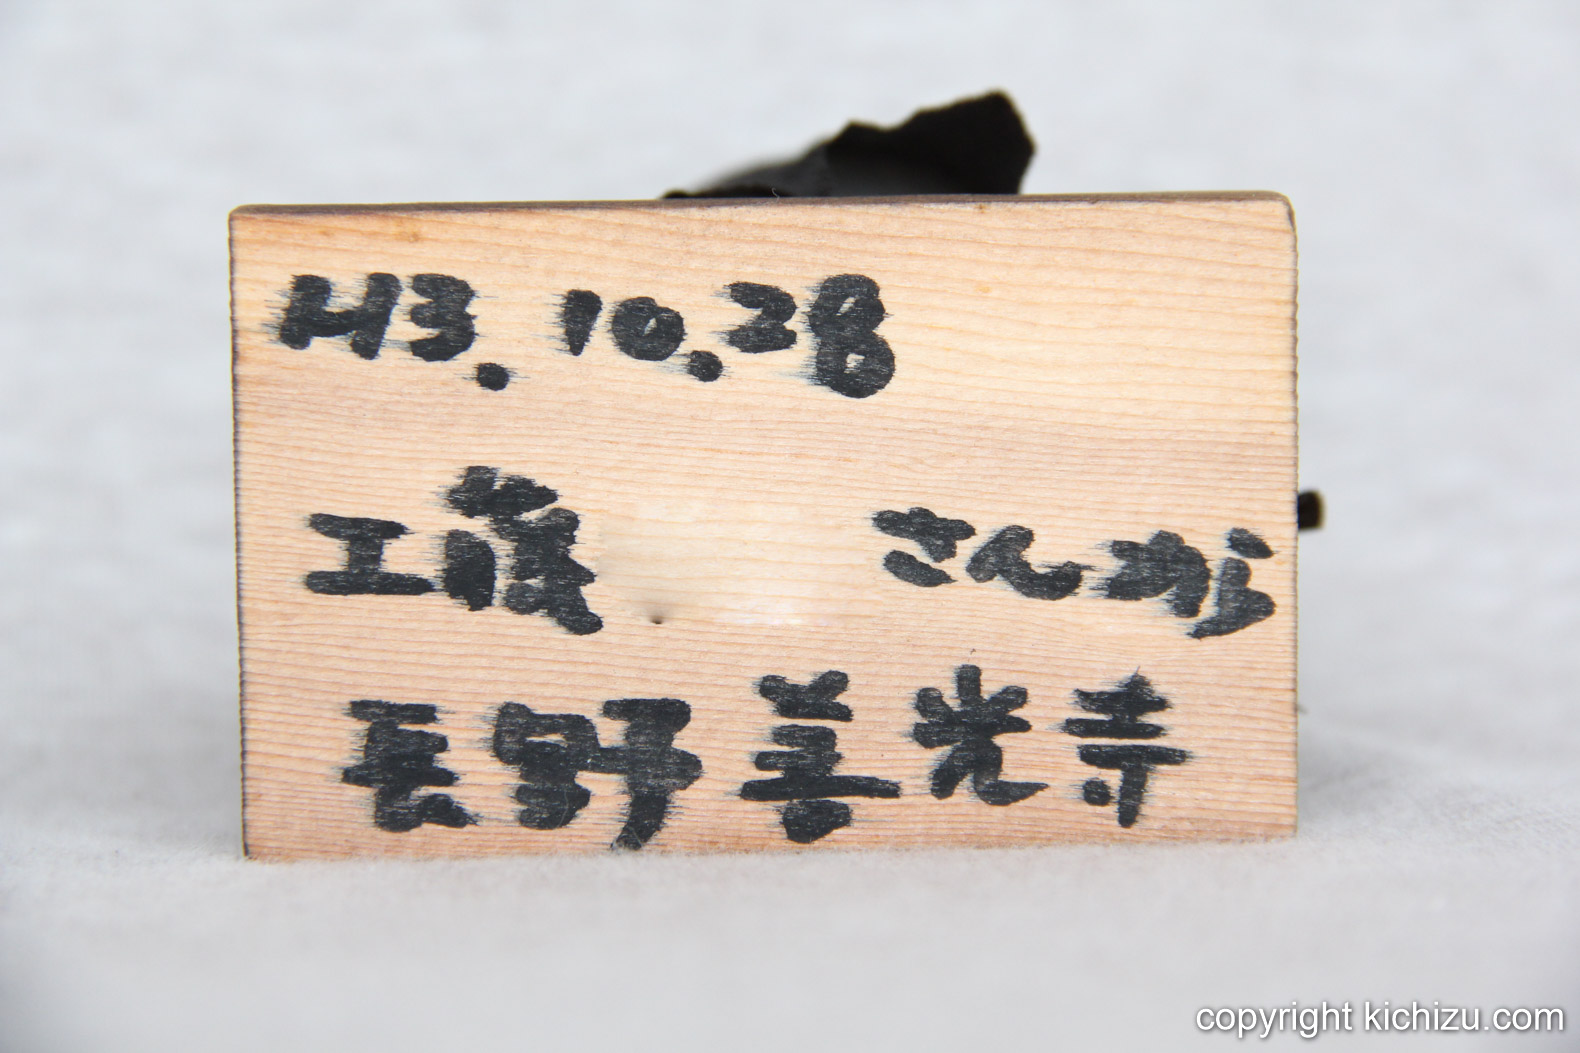 H3.10.28
工藤 さんから
長野善光寺
copyright kichizu.com